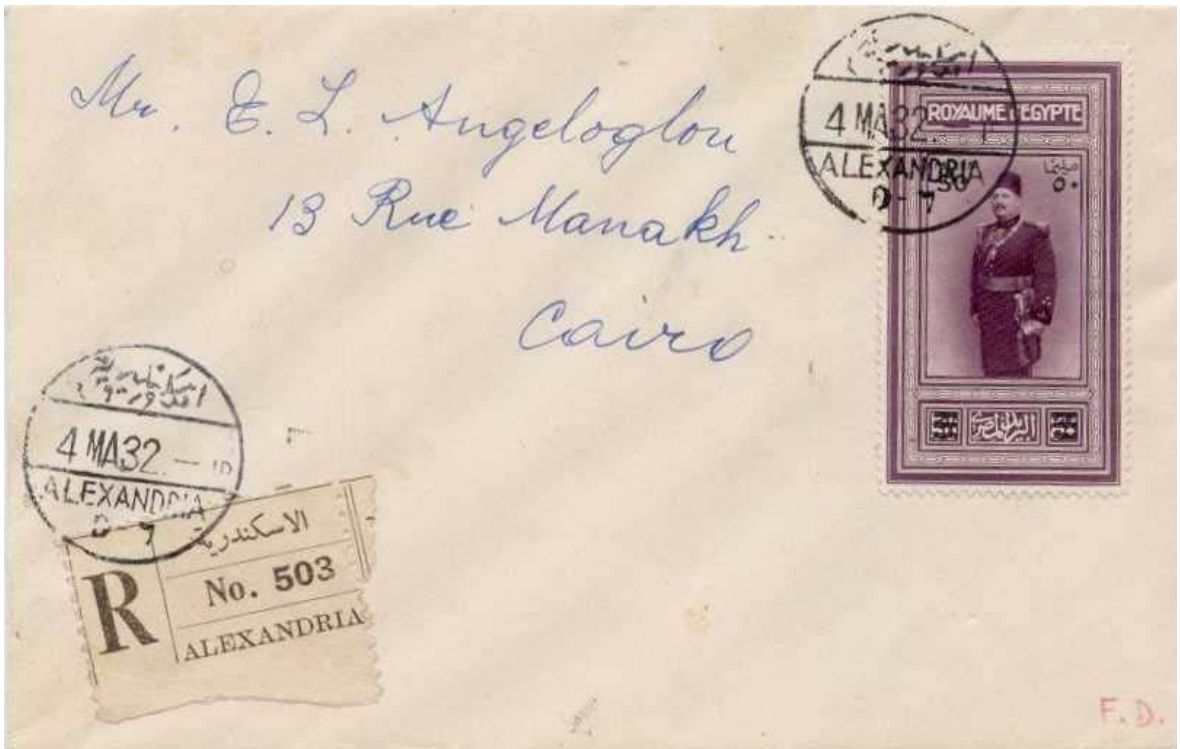 Mr. E. L. Angeloglou
13 Rue Manakh
Cairo
4 MA32
ALEXANDRIA
ROYAUME D'EGYPTE
٥٠
البريد المصري
4 MA32
ALEXANDRIA
الاسكندرية
R
No. 503
ALEXANDRIA
F. D.